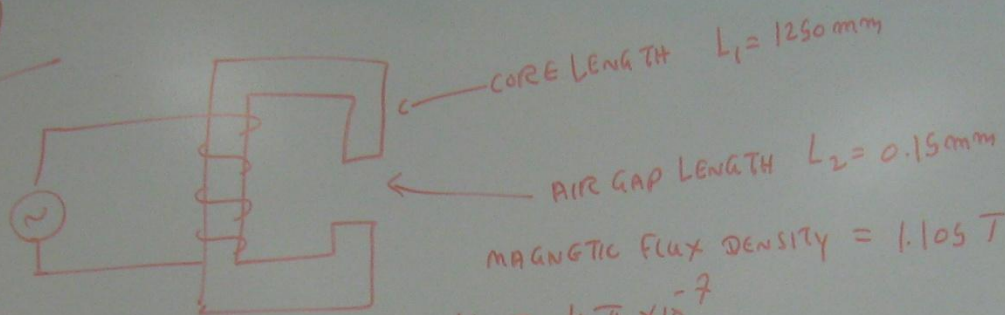 CORE LENGTH L₁ = 1250 mm
AIR GAP LENGTH L₂ = 0.15 mm
MAGNETIC FLUX DENSITY = 1.105 T
π ×10⁻⁷
~